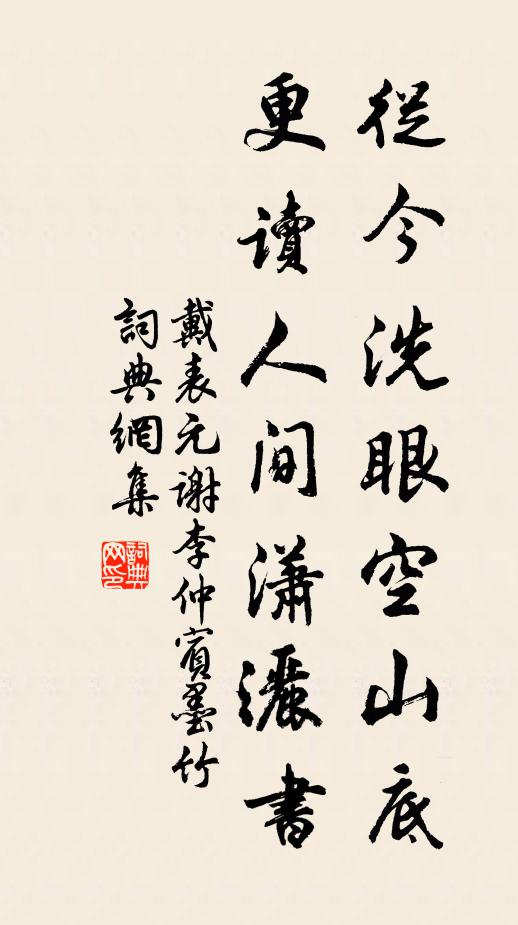 從今洗眼空山底
更讀人间瀟灑書
戴表元谢李仲賓墨竹
詞典網集
詞典网印